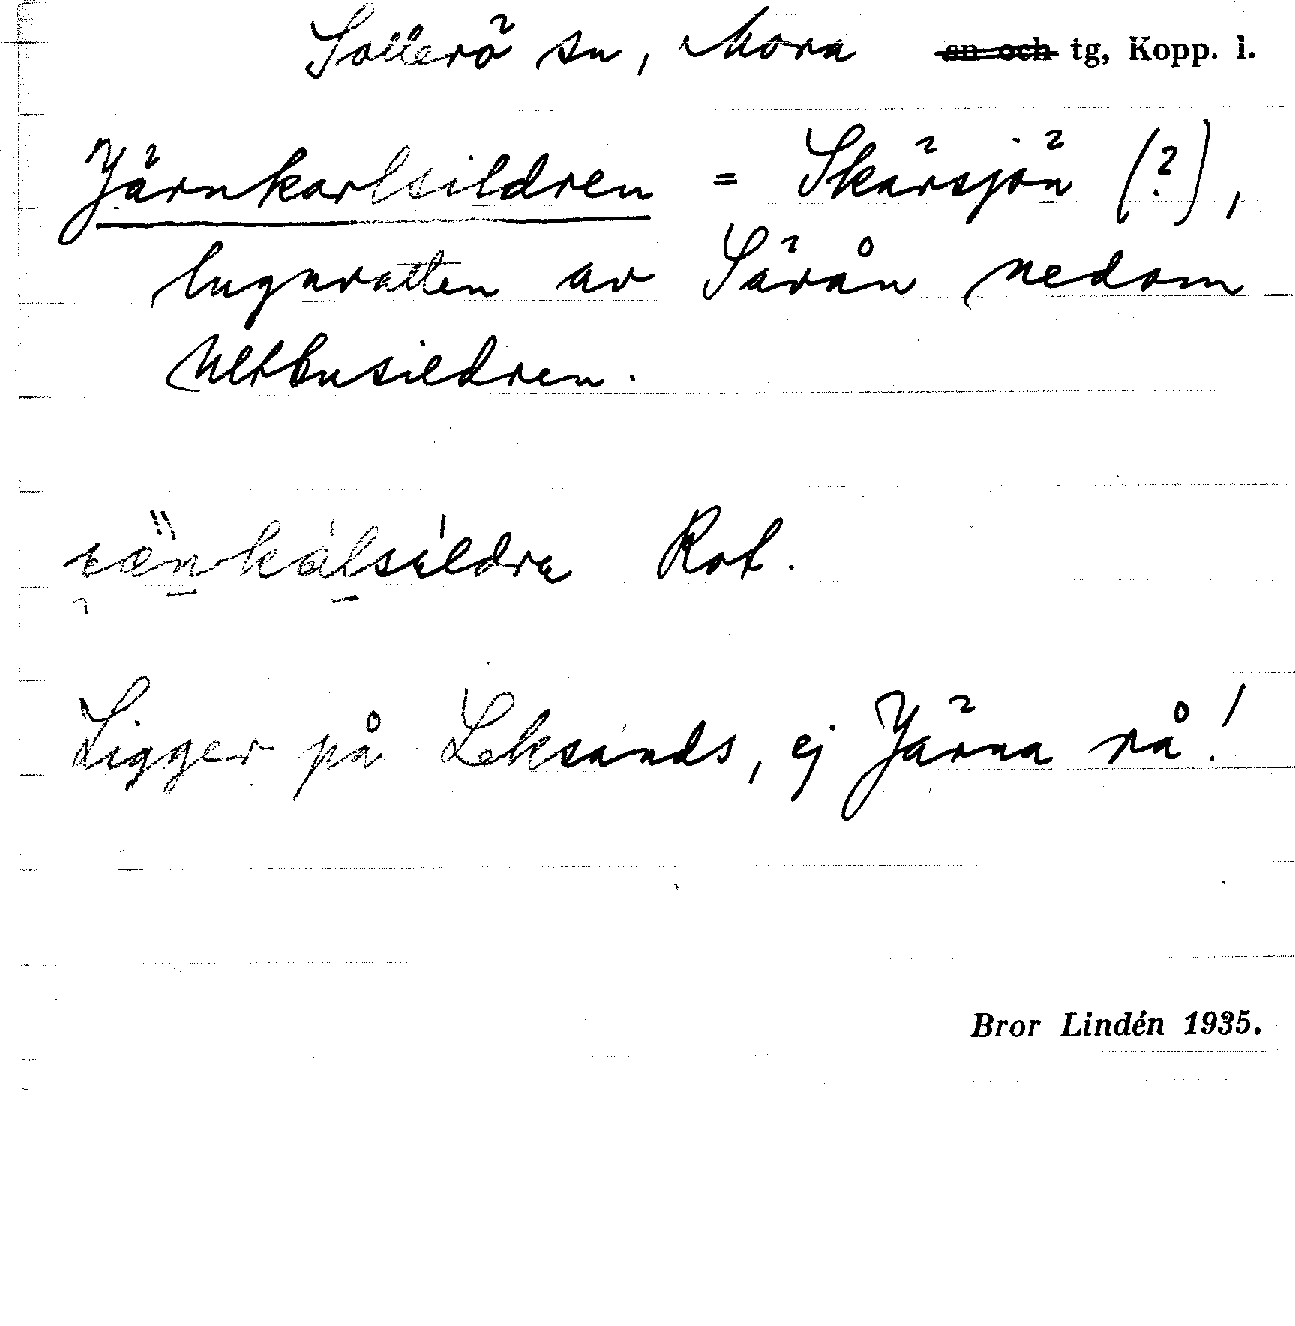 Sollerö sn, Mora sn och tg, Kopp. l.
Järnkarlsildren = Skärsjön (?),
lugnvatten av Särån nedom
sildren.
Rot.
Ligger på Leksands, ej Järna rå!
Bror Lindén 1935.